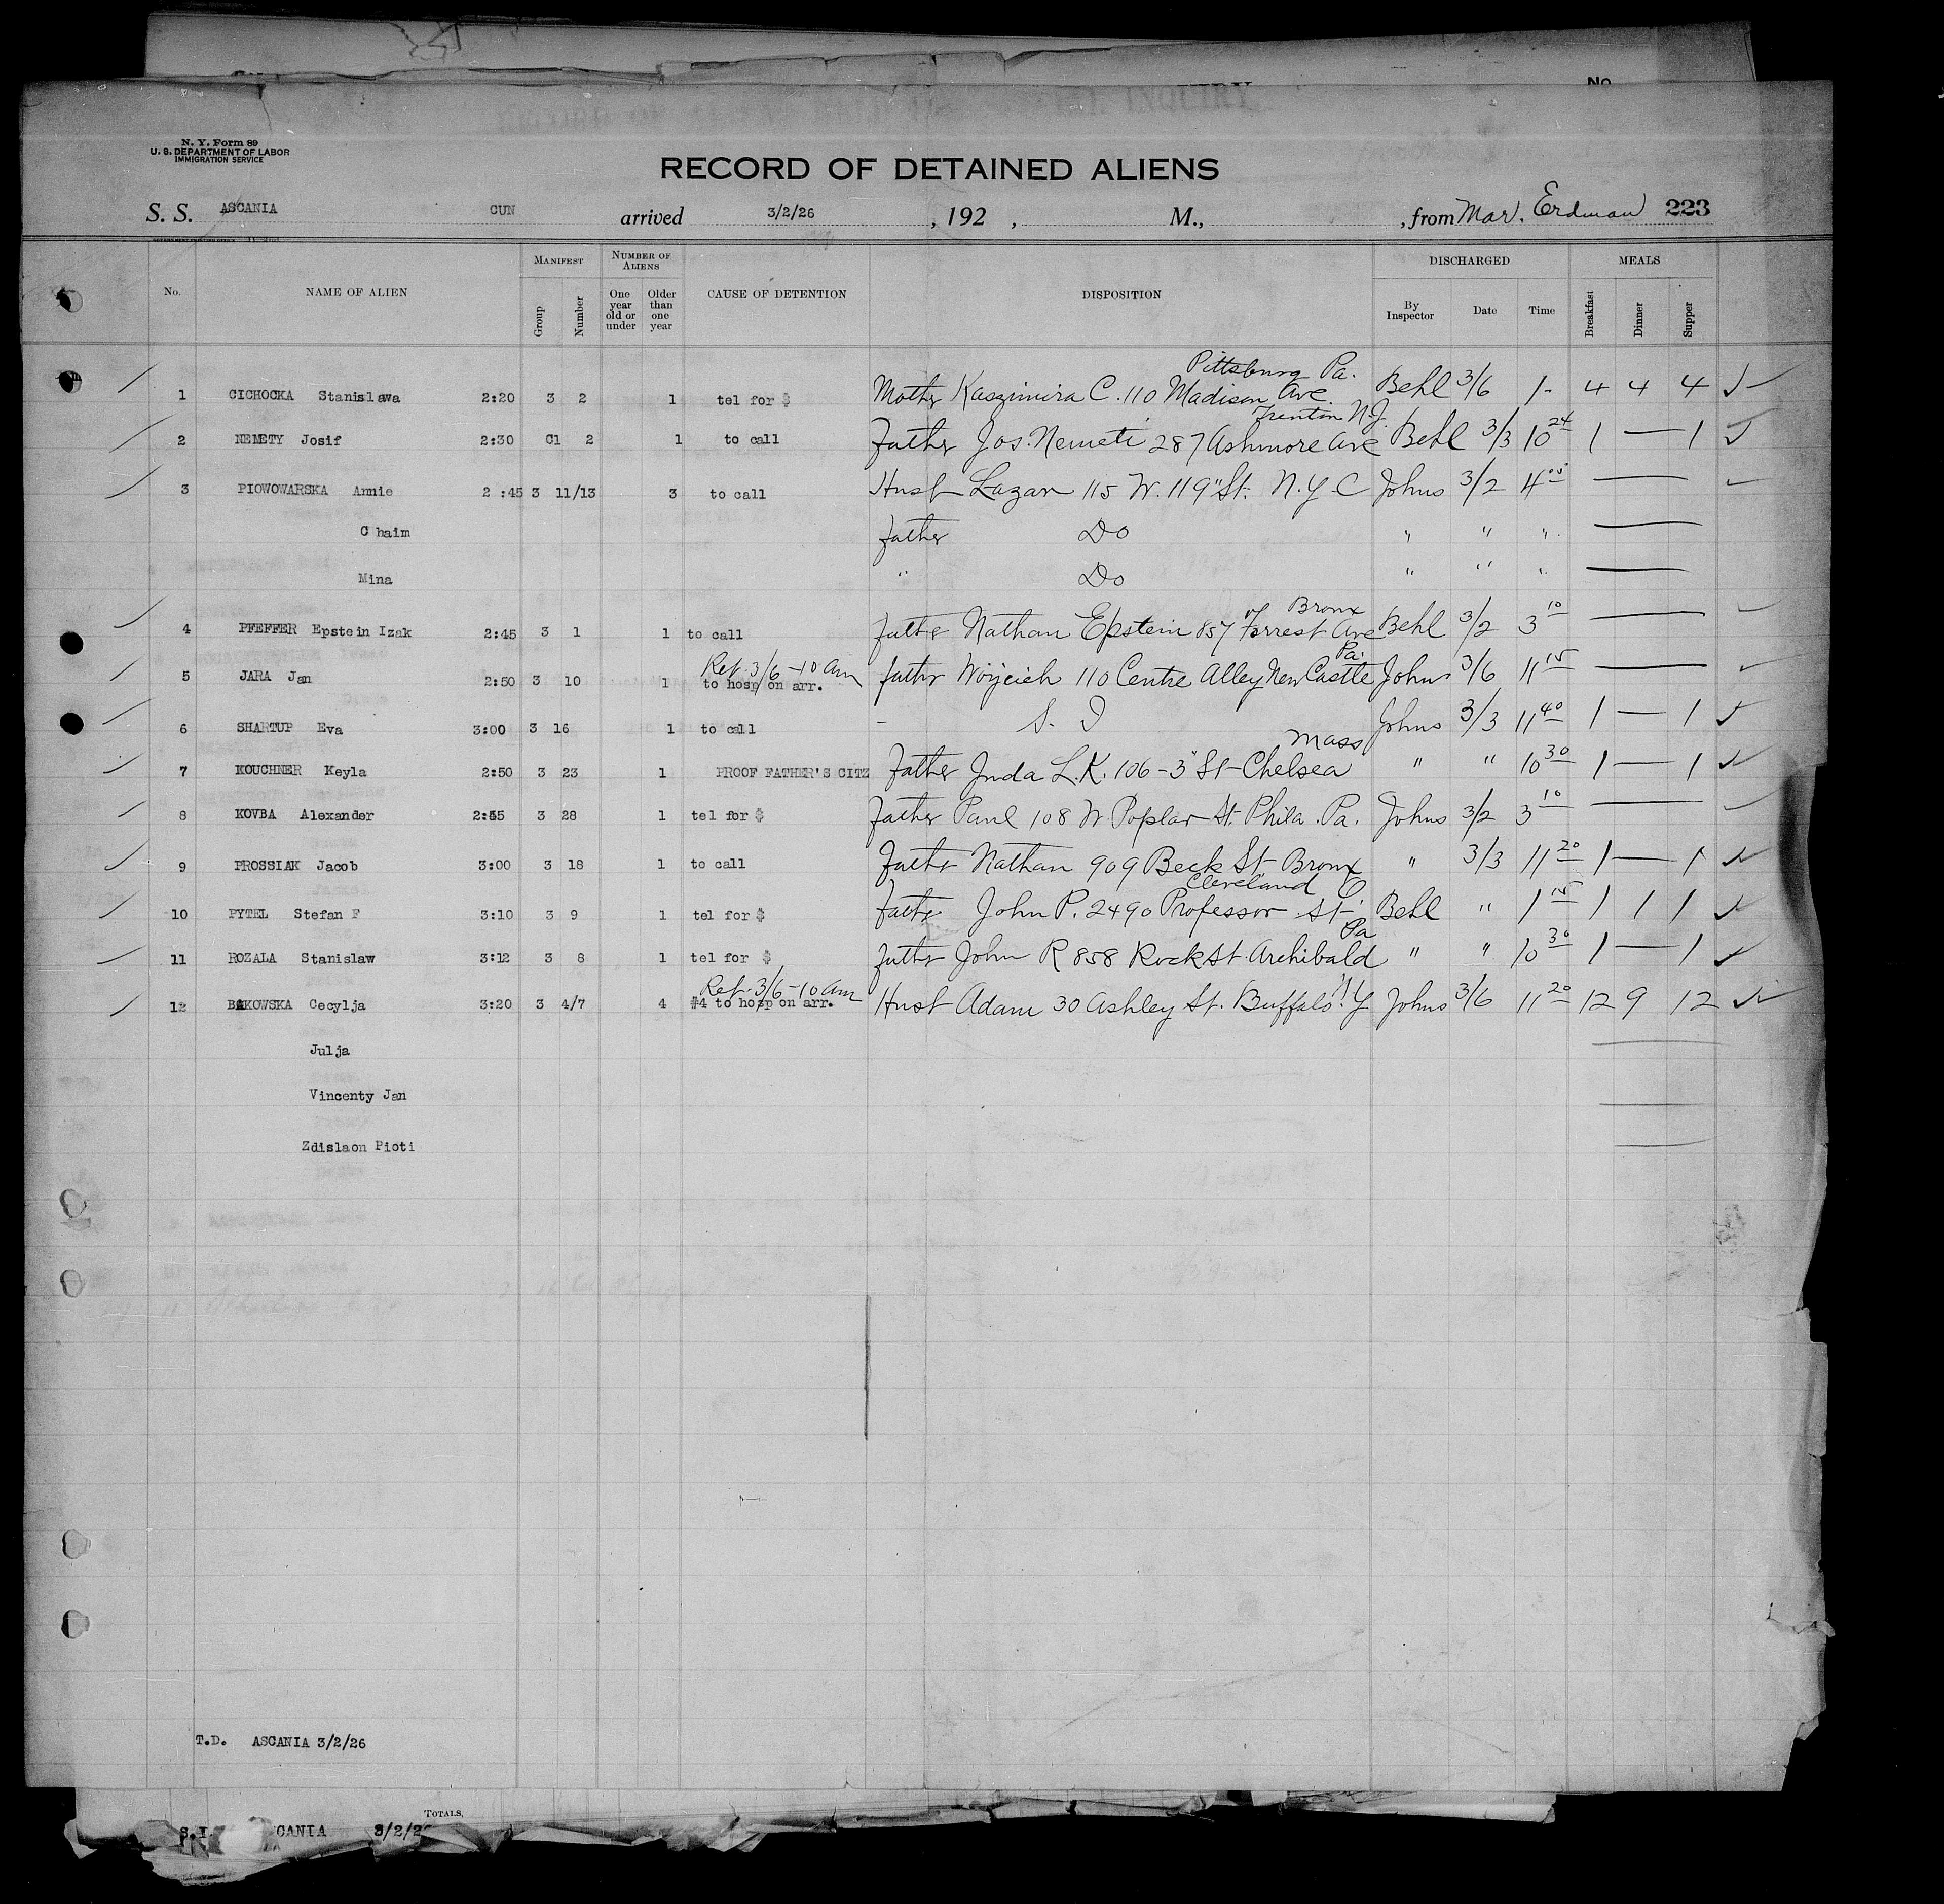 No.
N. Y. Form 89
U. S. DEPARTMENT OF LABOR
IMMIGRATION SERVICE
RECORD OF DETAINED ALIENS
S. S. ASCANIA CUN arrived 3/2/26 , 192 , M., , from Mar. Erdman 223
No. NAME OF ALIEN MANIFEST Group Number NUMBER OF ALIENS One year old or under Older than one year CAUSE OF DETENTION DISPOSITION DISCHARGED By Inspector Date Time MEALS Breakfast Dinner Supper
Pittsburg Pa.
1 CICHOCKA Stanislawa 2:20 3 2 1 tel for $ Mother Kaszimira C. 110 Madison Ave. Behl 3/6 1- 4 4 4
Trenton N.J.
2 NEMETY Josif 2:30 C1 2 1 to call Father Jos. Nemeti 287 Ashmore Ave Behl 3/3 10 24 1 — 1
3 PIOWOWARSKA Annie 2 :45 3 11/13 3 to call Husb Lazar 115 W. 119" St. N.Y.C Johns 3/2 4 05 —
C haim Father Do " " " —
Mina " Do " " " —
Bronx
4 PFEFFER Epstein Izak 2:45 3 1 1 to call Father Nathan Epstein 857 Forrest Ave Behl 3/2 3 10 —
Ret. 3/6 - 10 am Pa.
5 JARA Jan 2:50 3 10 1 to hosp on arr. Father Wojcieh 110 Centre Alley New Castle Johns 3/6 11 15 —
6 SHARTUP Eva 3:00 3 16 1 to call - S. I Johns 3/3 11 40 1 — 1
Mass
7 KOUCHNER Keyla 2:50 3 23 1 PROOF FATHER'S CITZ Father Juda L.K. 106 - 3" St Chelsea " " 10 30 1 — 1
8 KOVBA Alexander 2:55 3 28 1 tel for $ Father Paul 108 W. Poplar St. Phila. Pa. Johns 3/2 3 10 —
9 PROSSIAK Jacob 3:00 3 18 1 to call Father Nathan 909 Beck St Bronx " 3/3 11 20 1 — 1
Cleveland O
10 PYTEL Stefan F 3:10 3 9 1 tel for $ Father John P. 2490 Professor St. Behl " 1 15 1 1 1
Pa
11 ROZALA Stanislaw 3:12 3 8 1 tel for $ Father John R 858 Rock St. Archibald " " 10 30 1 — 1
Ret. 3/6 - 10 am
12 BAKOWSKA Cecylja 3:20 3 4/7 4 #4 to hosp on arr. Husb Adam 30 Ashley St. Buffalo N.Y Johns 3/6 11 20 12 9 12
Julja
Vincenty Jan
Zdislaon Pioti
T.D. ASCANIA 3/2/26
TOTALS,
S.I. CANIA 3/2/2